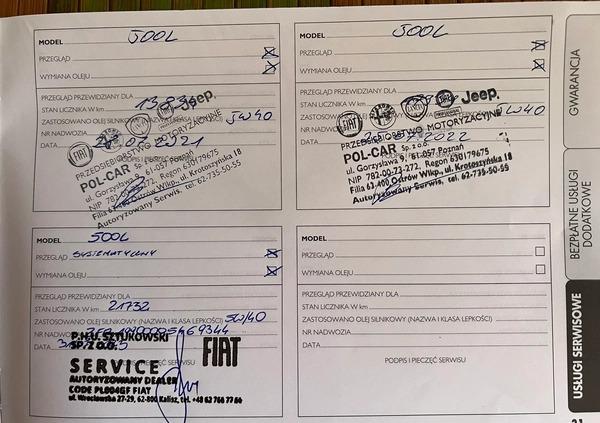 MODEL 500L
PRZEGLĄD
WYMIANA OLEJU
PRZEGLĄD PRZEWIDZIANY DLA
STAN LICZNIKA W km
ZASTOSOWANO OLEJ SILNIKOWY 5W40
NR NADWOZIA
DATA 07 2021
FIAT Jeep
PRZEDSIĘBIORSTWO MOTORYZACYJNE
POL-CAR Sp. z o.o.
ul. Gorzysława 9, 61-057 Poznań
NIP 782-00-73-272, Regon 630179675
Filia 63-400 Ostrów Wlkp., ul. Krotoszyńska 18
Autoryzowany Serwis, tel. 62-735-50-55
MODEL 500L
PRZEGLĄD
WYMIANA OLEJU
PRZEGLĄD PRZEWIDZIANY DLA
STAN LICZNIKA W km
ZASTOSOWANO OLEJ SILNIKOWY 5W40
NR NADWOZIA
DATA 2022
FIAT Jeep
PRZEDSIĘBIORSTWO MOTORYZACYJNE
POL-CAR Sp. z o.o.
ul. Gorzysława 9, 61-057 Poznań
NIP 782-00-73-272, Regon 630179675
Filia 63-400 Ostrów Wlkp., ul. Krotoszyńska 18
Autoryzowany Serwis, tel. 62-735-50-55
MODEL 500L
PRZEGLĄD SYSTEMATYCZNY
WYMIANA OLEJU
PRZEGLĄD PRZEWIDZIANY DLA
STAN LICZNIKA W km 21732
ZASTOSOWANO OLEJ SILNIKOWY (NAZWA I KLASA LEPKOŚCI) 5W40
NR NADWOZIA
DATA
PODPIS I PIECZĘĆ SERWISU
P.H.U. SZTUKOWSKI
SP. Z O.O.
SERVICE FIAT
AUTORYZOWANY DEALER
CODE PL804GF FIAT
ul. Wrocławska 27-29, 62-800 Kalisz, tel. +48 62 766 77 66
MODEL
PRZEGLĄD
WYMIANA OLEJU
PRZEGLĄD PRZEWIDZIANY DLA
STAN LICZNIKA W km
ZASTOSOWANO OLEJ SILNIKOWY (NAZWA I KLASA LEPKOŚCI)
NR NADWOZIA
DATA
PODPIS I PIECZĘĆ SERWISU
GWARANCJA
BEZPŁATNE USŁUGI
DODATKOWE
USŁUGI SERWISOWE